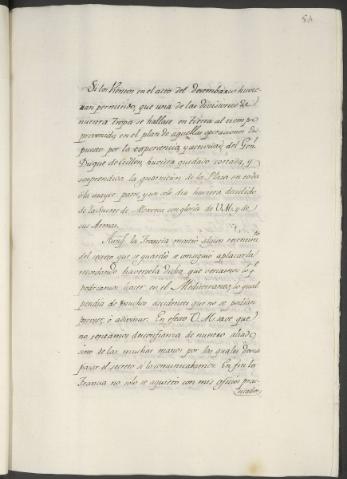 54
Si los Vientos en el acto del desembarco hubie-
ran permitido, que una de las divisiones de
nuestra Tropa se hallase en tierra al tiempo
prevenido en el plan de aquellas operaciones dis-
puesto por la experiencia, y actividad del Gen.
Duque de Crillon, hubiera quedado cortada, y
sorprendida la guarnicion de la Plaza en toda
ò la mayor parte, y aquel dia huviera decidido
de la suerte de Menorca con gloria de V.M. y de
sus Armas.
Aunq.e la Francia mostró algun resentim.to
del secreto que se guardó se consiguió aplacarla
recordando haverselo dicho, que veriamos lo q.e
podriamos hacer en el Mediterraneo, lo qual
pendia de muchos accidentes que no se podian
preveer, ò adivinar. En efecto V.M. save que
no teniamos desconfianza de nuestro aliado,
sino de las muchas manos por las quales devia
pasar el secreto si lo comunicabamos. En fin la
Francia no solo se aquietó con mis oficios prac-
ticados,